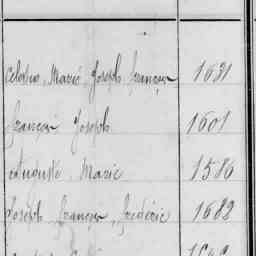 Marie Joseph François 1631
François Joseph 1601
Auguste Marie 1586
Joseph François Frédéric 1682